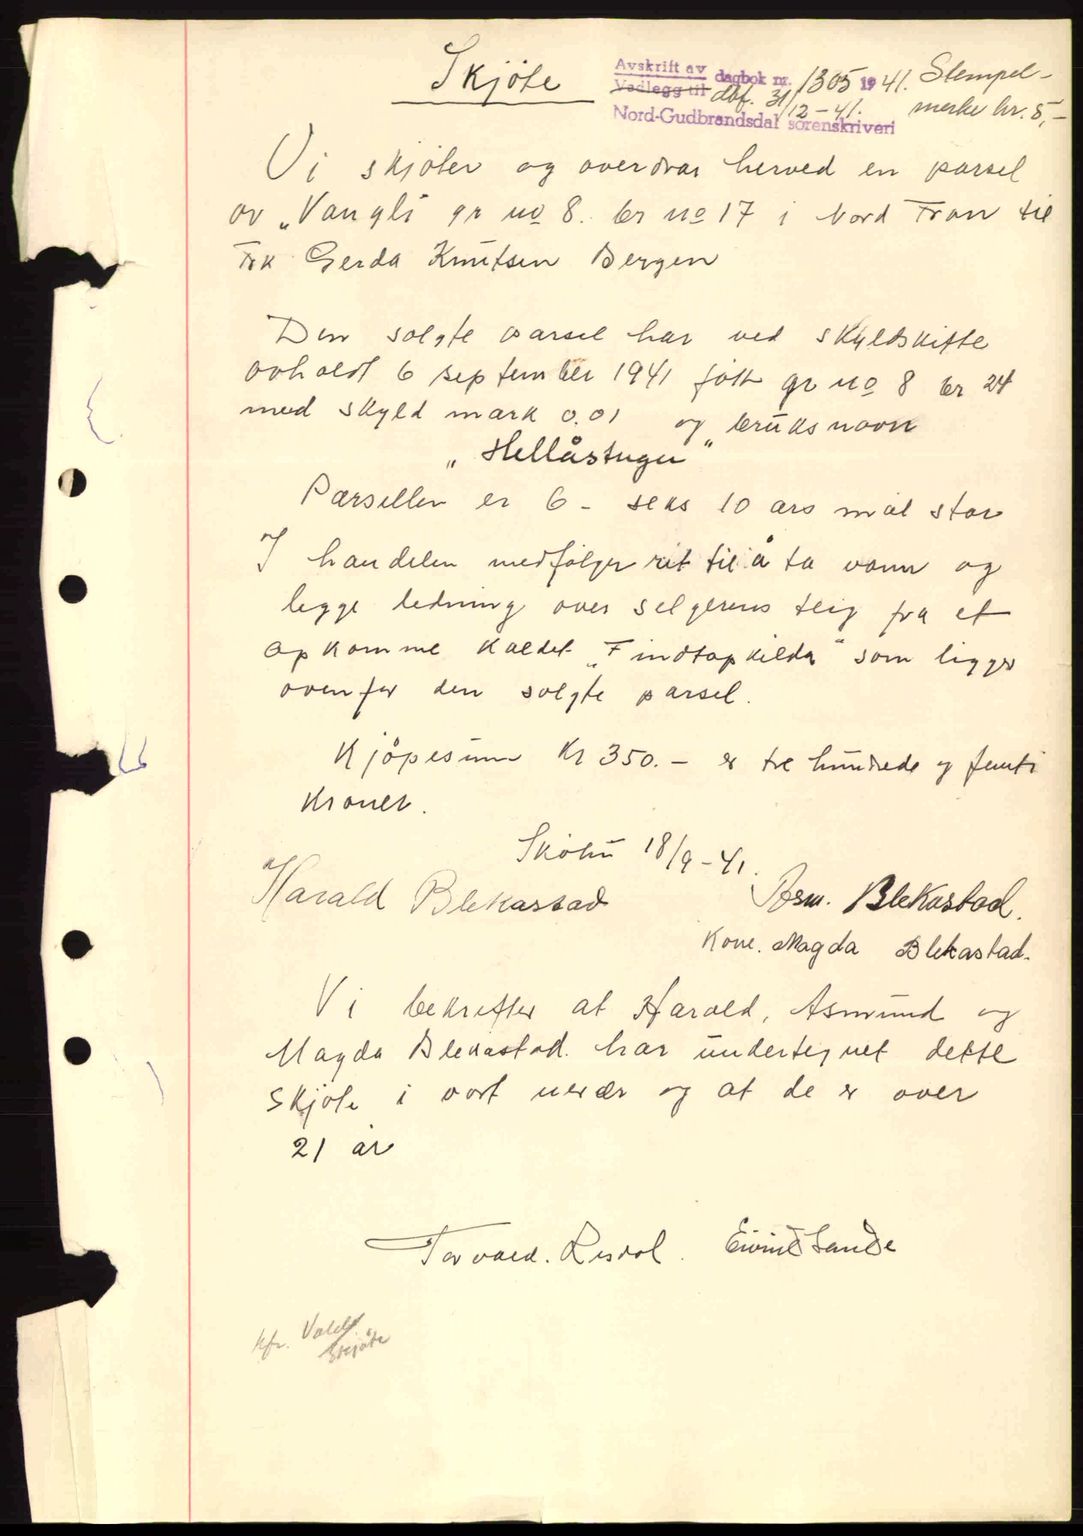 Skjöte
Avskrift av dagbok nr. 1305 1941. Stempel-
Vedlegg til dbf. 31/12-41. merke kr. 5,-
Nord-Gudbrandsdal sorenskriveri
Vi skjöter og overdrar herved en parsel
av „Vangli gr no 8. br no 17 i Nord Fron til
Frk Gerda Knutsen Bergen
Den solgte parsel har ved skyldskifte
avholdt 6 september 1941 fått gr no 8 br 24
med skyld mark 0.01 og bruksnavn
„Hellåstugu"
Parsellen er 6 - seks 10 ars mål stor
I handelen medfölger ret til å ta vann og
legge ledning over selgerens teig fra et
opkomme kaldet „Findtopkilda" som ligger
ovenfor den solgte parsel.
Kjöpesum Kr 350.- er tre hundrede og femti
kroner.
18/9-41.
Harald Blekastad Asm. Blekastad.
Kone. Magda Blekastad.
Vi bekrefter at Harald, Asmund og
Magda Blekastad. har undertegnet dette
skjöte i vort nerær og at de er over
21 år
Torvald. Eivind Sande
kfr. Skjöte